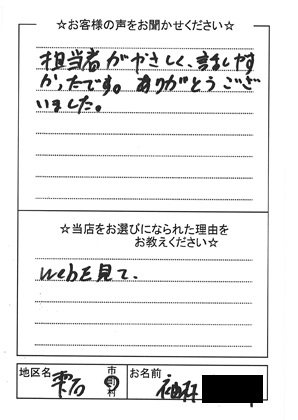 ☆お客様の声をお聞かせください☆
担当者がやさしく、話しやす
かったです。ありがとうござ
いました。
☆当店をお選びになられた理由を
お教えください☆
Webを見て、
地区名 雫石 市町村 お名前